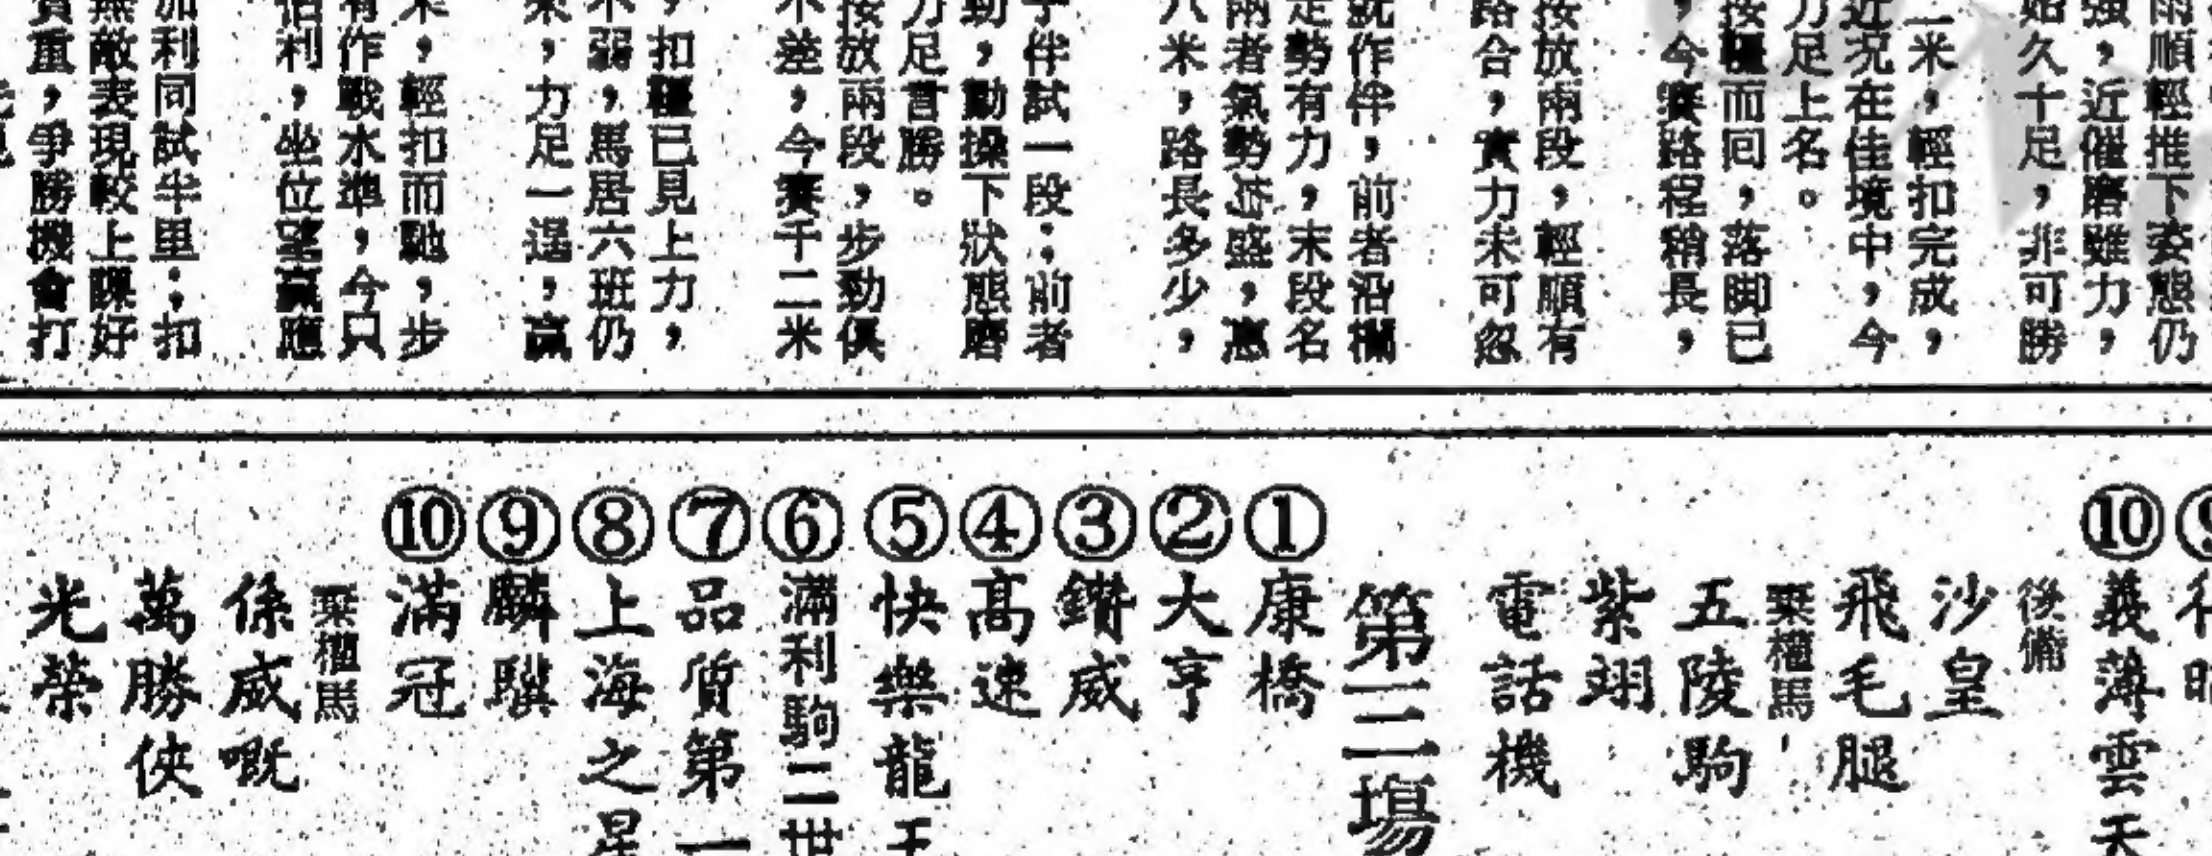 雨順輕推下姿態仍
強，近催磨雖力，
始久十足，非可勝
二米，輕扣完成，
近況在佳境中，今
力足上名。
按轡而回，落脚已
，今賽路程稍長，
按放兩段，輕順有
路合，實力未可忽
就作伴，前者沿欄
走勢有力，末段名
兩者氣勢並盛，惠
八米，路長多少，
子伴試一段：前者
勁，動操下狀態磨
力足言勝。
按放兩段，步勁俱
不差，今賽千二米
，扣轡已見上力，
不弱，馬居六班仍
來，力足一逞，贏
米，輕扣而馳，步
有作戰水準，今只
佰利，坐位望贏應
加利同試半里：扣
無敵表現較上課好
負重，爭勝機會打
⑨
⑩義薄雲天
後備
沙皇
飛毛腿
棄權馬
五陵駒
紫翊
電話機
第三場
①康橋
②大亨
③鑽威
④高速
⑤快樂龍王
⑥滿利駒二世
⑦品質第一
⑧上海之星
⑨麟騏
⑩滿冠
棄權馬
係威嘅
萬勝俠
光榮